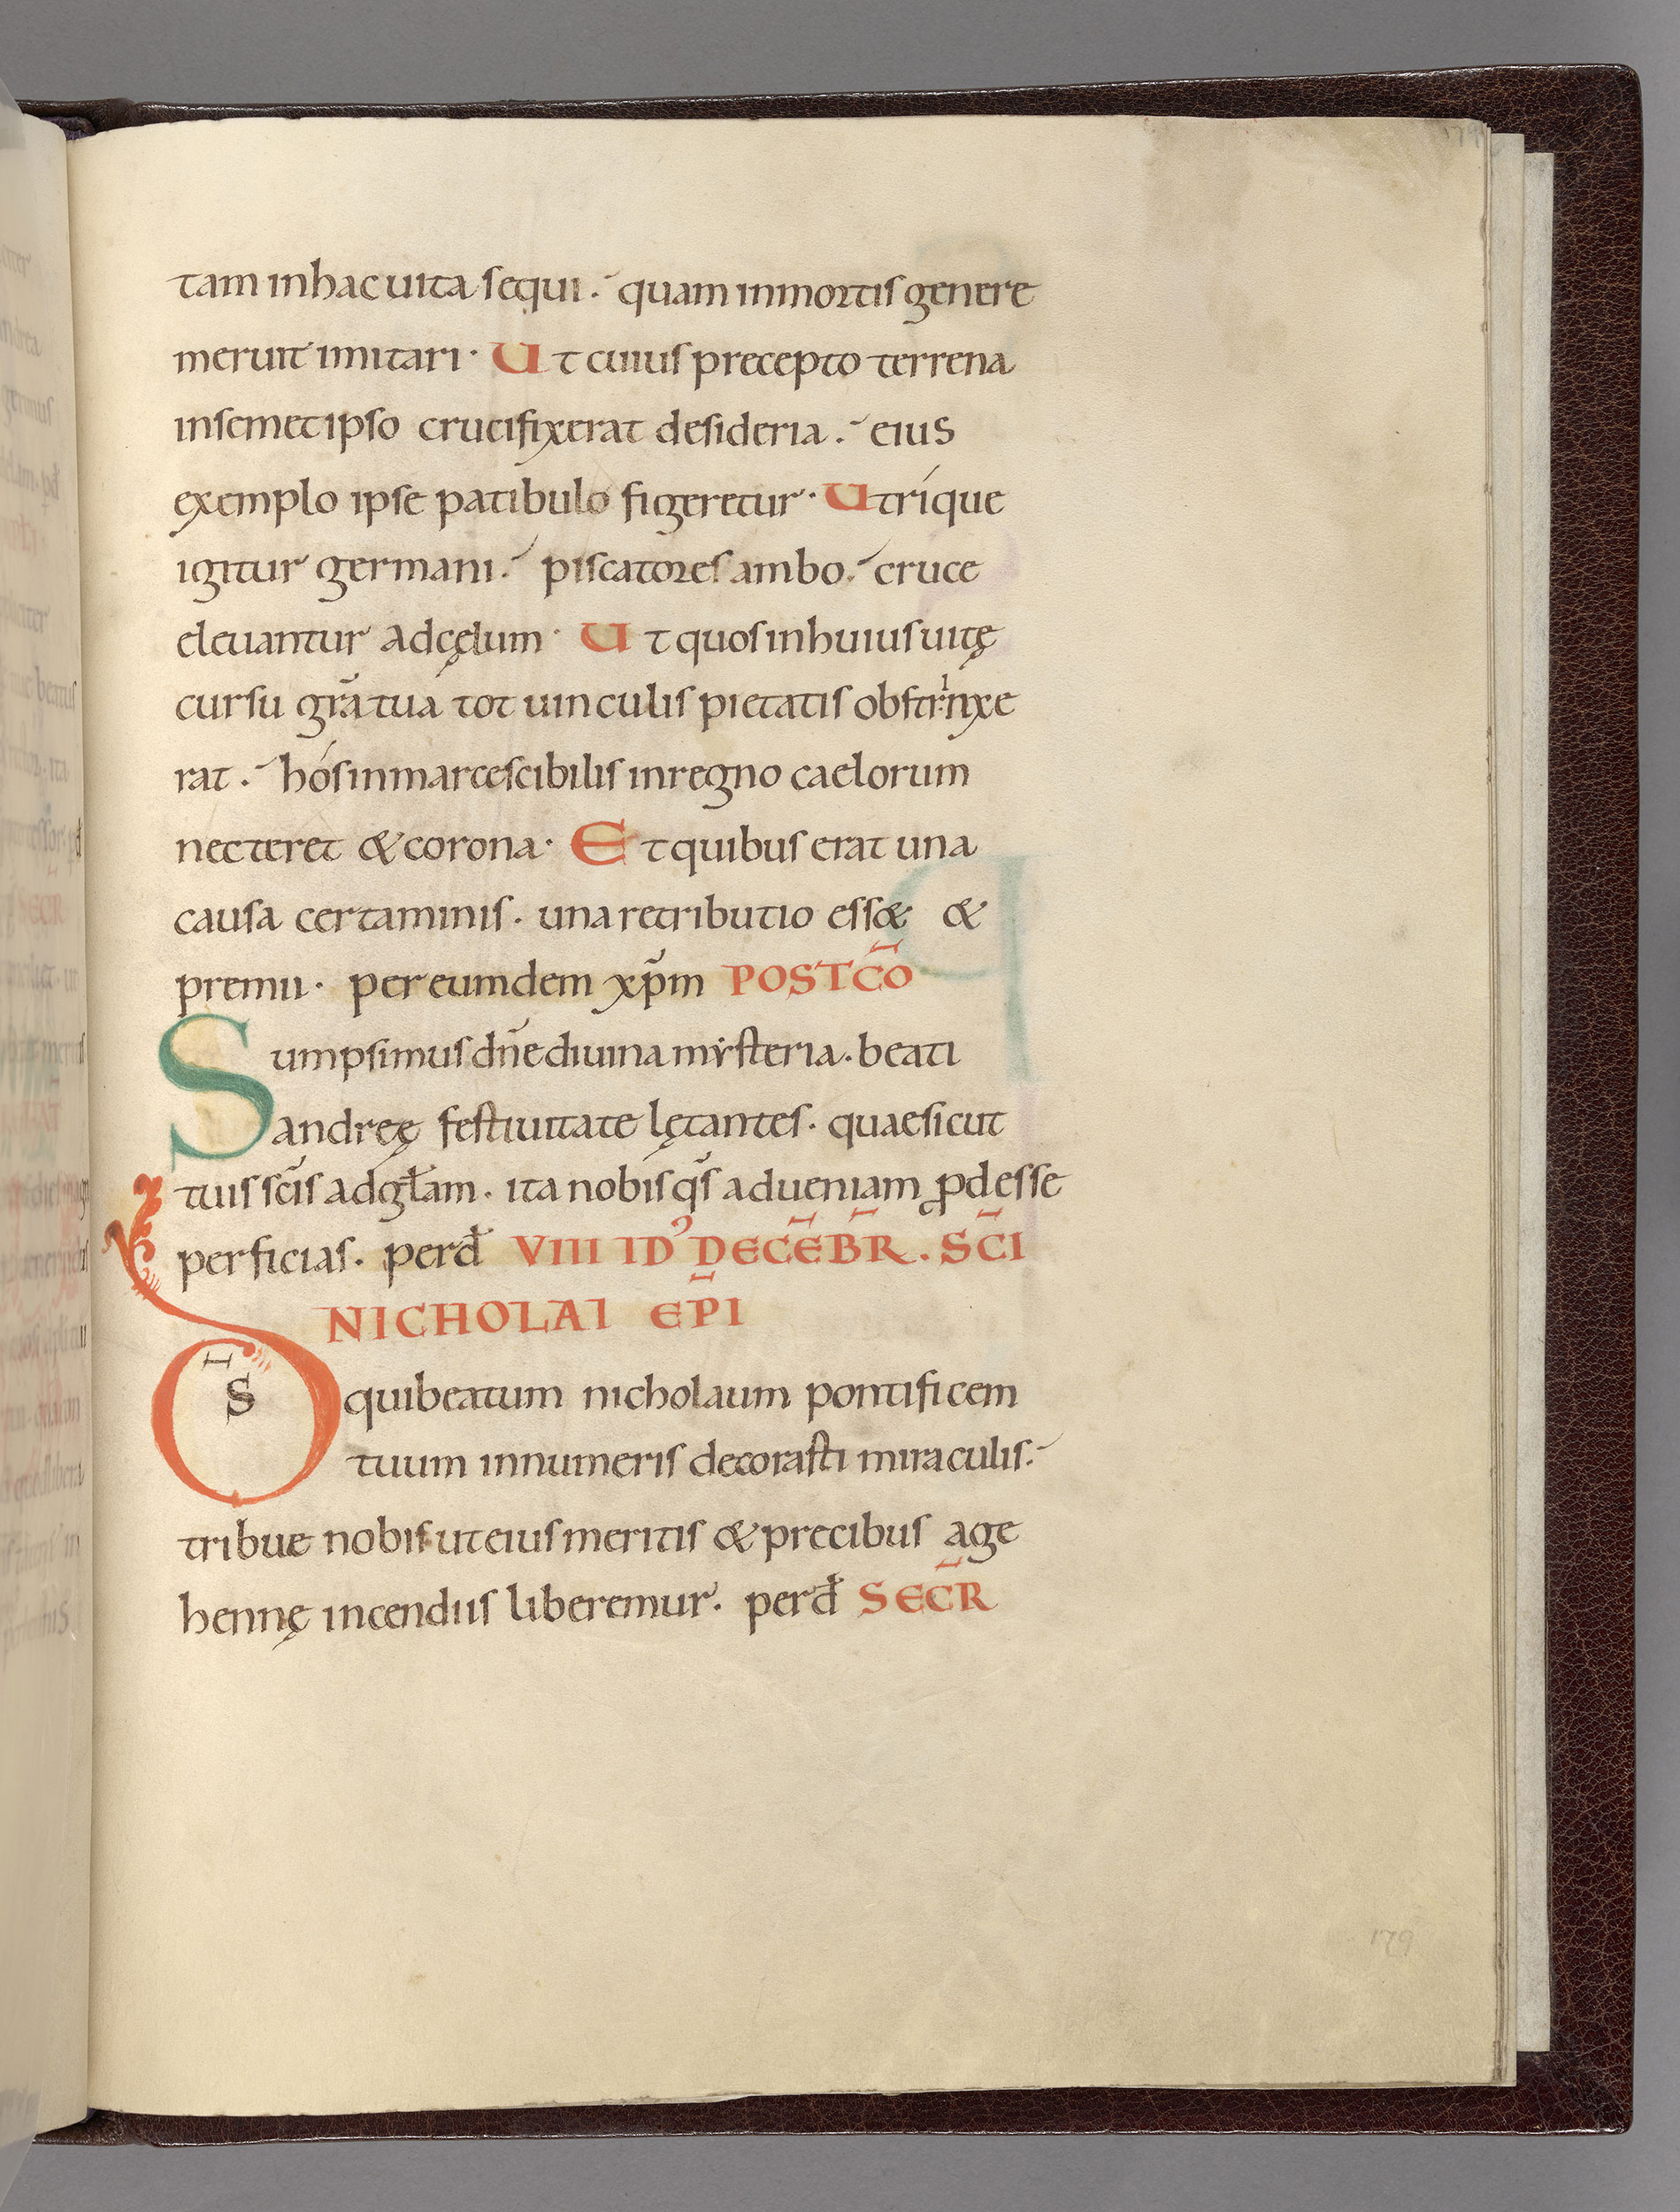 tam inhac uita sequi. quam inmortis genere
meruit imitari· Ut cuius precepto terrena
insemetipso crucifixerat desideria. eius
exemplo ipse patibulo figeretur· Utríque
igitur germani. piscatores ambo. cruce
eleuantur adcęlum· Ut quosinhuiusuitę
cursu gr̃a tua tot uinculis pietatis obstrinxe
rat. hós inmarcescibilis inregno caelorum
necteret & corona· Et quibus erat una
causa certaminis. una retributio ess& &
premii· per eumdem xp̃m POSTC̃O
Sumpsimus dñe diuina mẏsteria. beati
andreę festiuitate lętantes. quae sicut
tuis sc̃is adgłam. ita nobis q̃s adueniam ꝓdesse
perficias. perđ VIII ID' DEC̃EB̃R. SC̃I
NICHOLAI EP̃I
D̄S qui beatum nicholaum pontificem
tuum innumeris decorasti miraculis.
tribue nobis ut eius meritis & precibus age
hennę incendiis liberemur. perđ SEC̃R
179